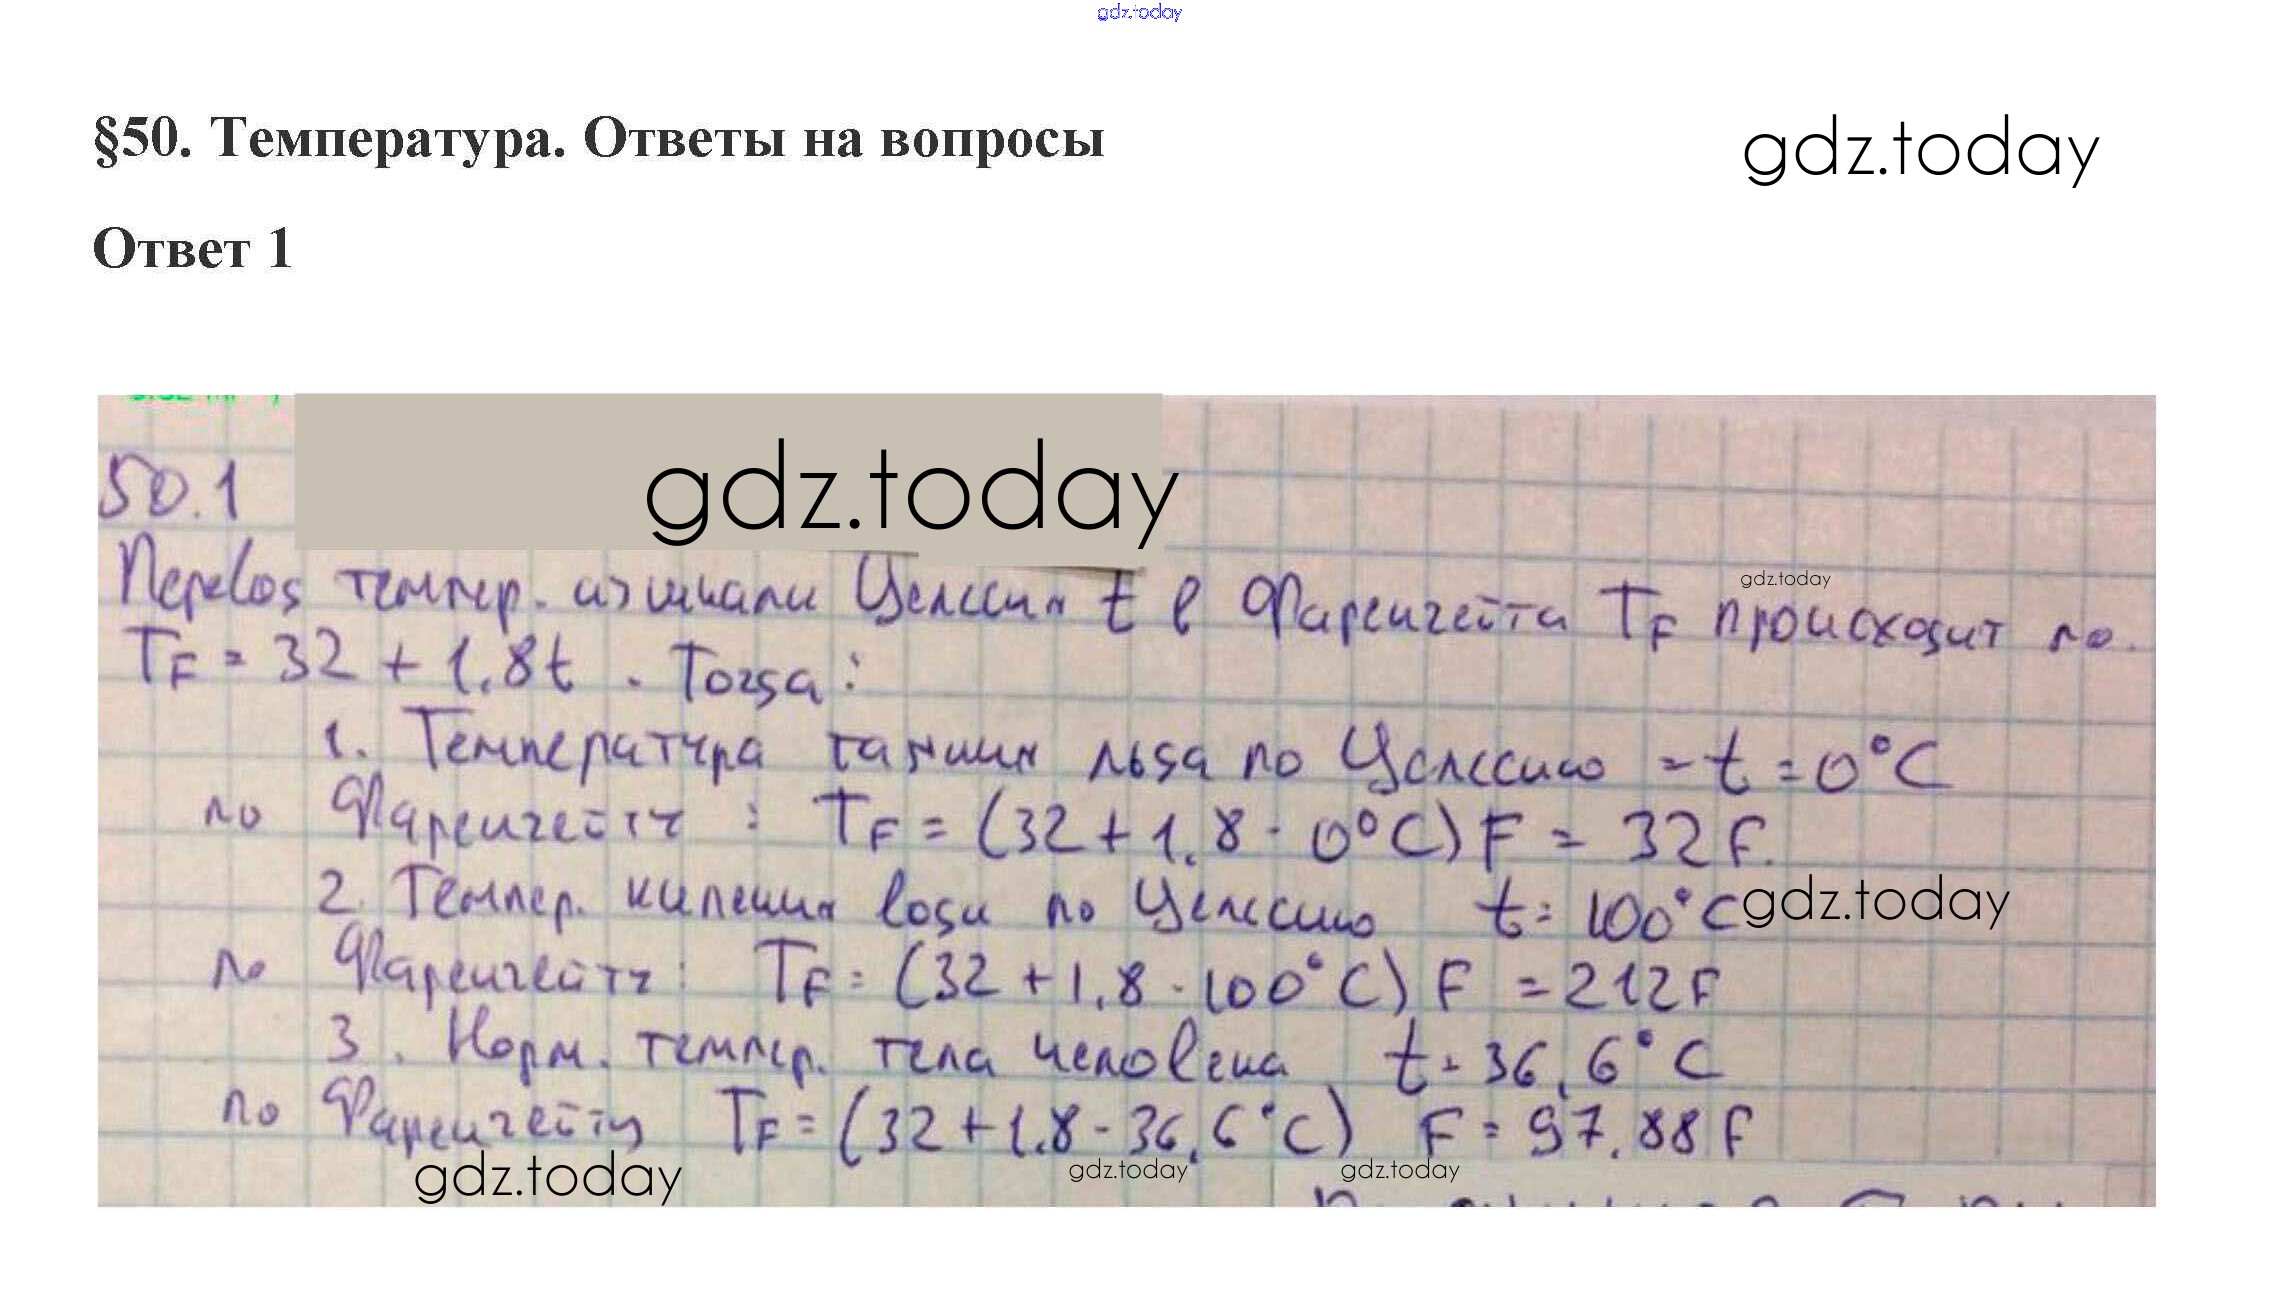 gdz.today
§50. Температура. Ответы на вопросы
gdz.today
Ответ 1
50.1
gdz.today
Перевод темпер. из шкалы Цельсия t в Фаренгейта TF происходит по
gdz.today
TF = 32 + 1.8t. Тогда:
1. Температура таяния льда по Цельсию - t = 0°C
по Фаренгейту: TF = (32 + 1.8 · 0°C) F = 32 F.
2. Темпер. кипения воды по Цельсию t = 100°C
gdz.today
по Фаренгейту: TF = (32 + 1.8 · 100°C) F = 212 F
3. Норм. темпер. тела человека t = 36,6°C
по Фаренгейту TF = (32 + 1.8 · 36,6°C) F = 97.88 F
gdz.today
gdz.today
gdz.today